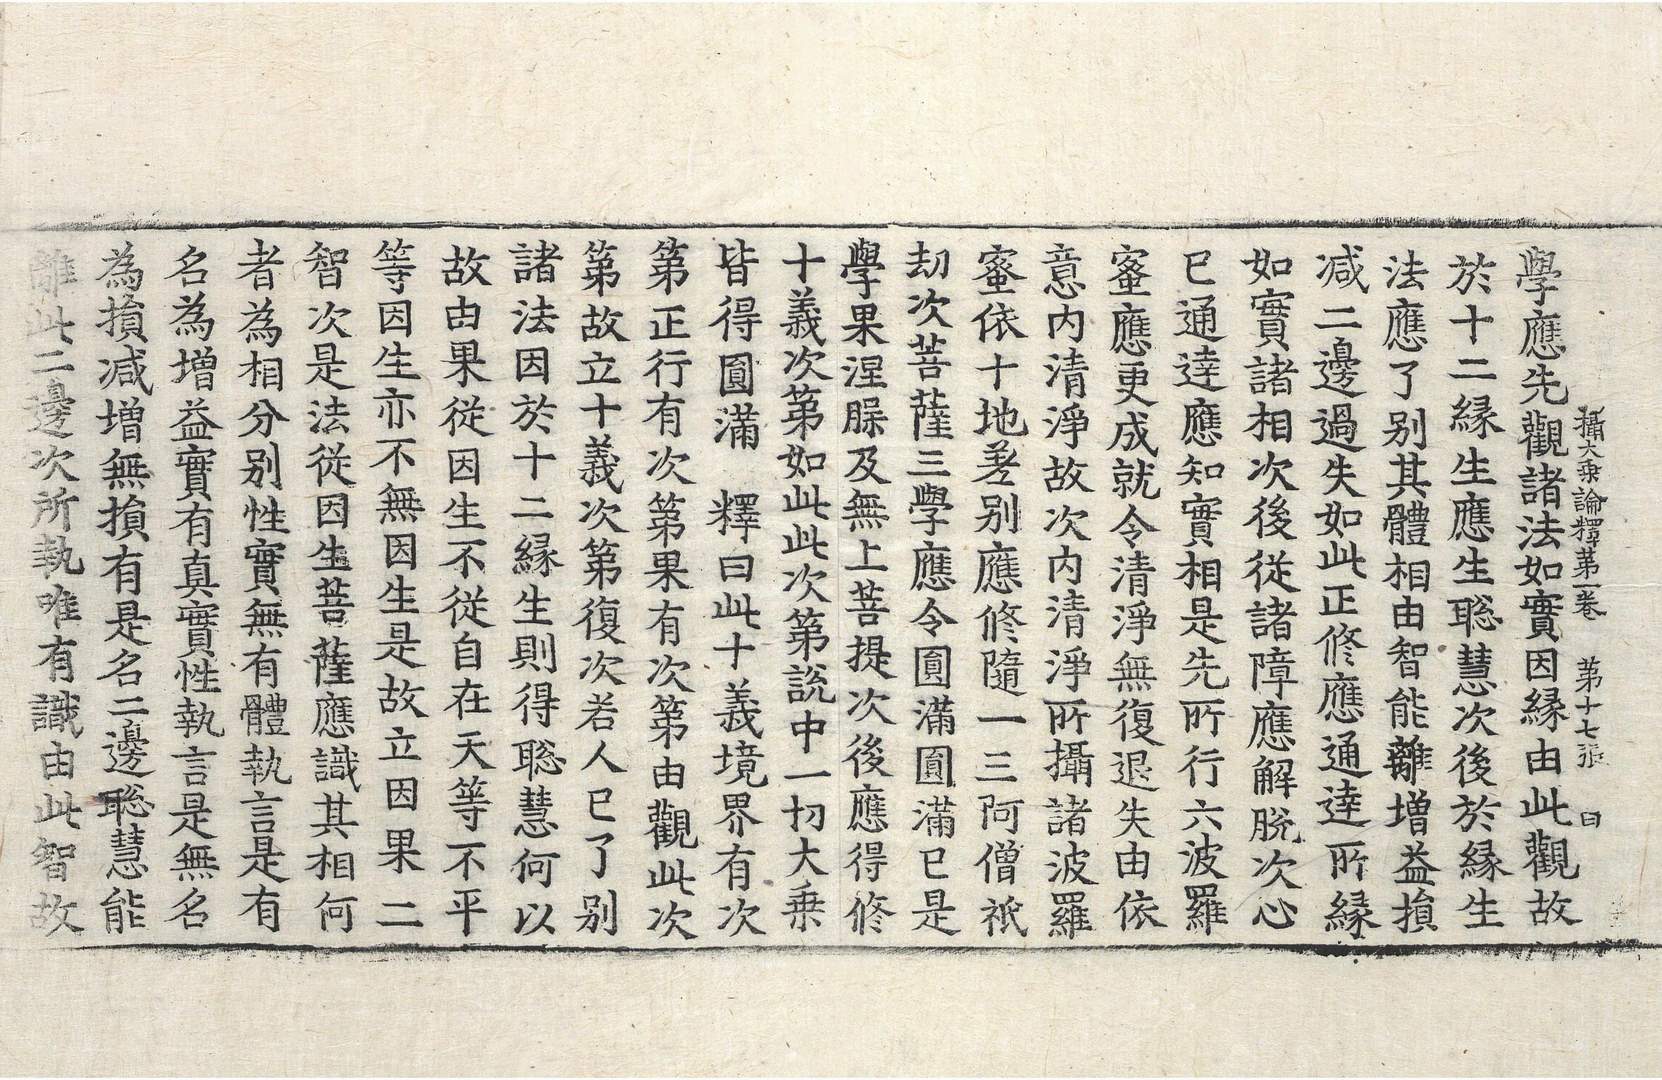 攝大乗論釋第一卷 第十七張 曰
學應先觀諸法如實因縁由此觀故
於十二縁生應生聡慧次後於縁生
法應了别其體相由智能離增益損
减二邊過失如此正修應通達所縁
如實諸相次後従諸障應解脱次心
已通達應知實相是先所行六波羅
蜜應更成就令清淨無復退失由依
意内清淨故次内清淨所攝諸波羅
蜜依十地差别應修隨一三阿僧祇
劫次菩薩三學應令圓滿圓滿已是
學果涅槃及無上菩提次後應得修
十義次第如此此次第説中一切大乗
皆得圓滿 釋曰此十義境界有次
第正行有次第果有次第由觀此次
第故立十義次第復次若人已了别
諸法因於十二縁生則得聡慧何以
故由果従因生不従自在天等不平
等因生亦不無因生是故立因果二
智次是法従因生菩薩應識其相何
者為相分别性實無有體執言是有
名為增益實有真實性執言是無名
為損减增無損有是名二邊聡慧能
離此二邊次所執唯有識由此智故